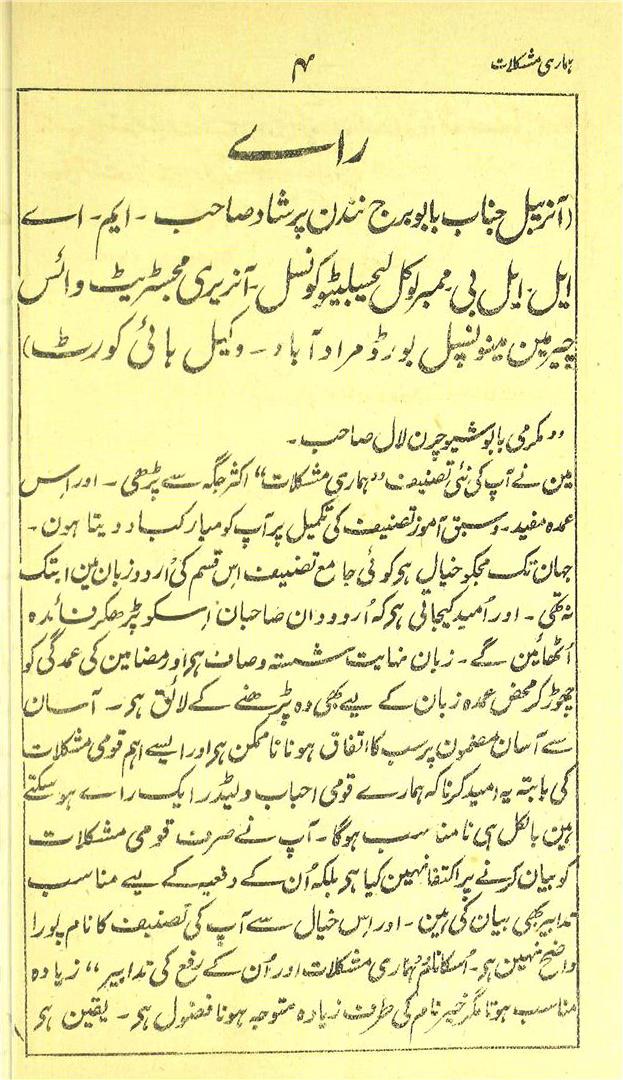 ہماری مشکلات
۴
راے
(آنریبل جناب بابو برج نندن پرشاد صاحب ۔ ایم ۔ اے
ایل ۔ ایل بی ۔ ممبر لوکل لیجیلیٹو کونسل ۔ آنریری مجسٹریٹ وائس
چیرمین مینونسپل بورڈ مرادآباد ۔ وکیل ہائی کورٹ)
”مکرمی بابو شیوچرن لال صاحب ۔
مین نے آپ کی نئی تصنیف ”ہماری مشکلات“ اکثر جگہ سے پڑھی ۔ اور اِس
عمدہ مفید ۔ و سبق آموز تصنیف کی تکمیل پر آپ کو مبارکباد دیتا ہون ۔
جہان تک مجکو خیال ہی کوئی جامع تصنیف اِس قسم کی اُردو زبان مین ابتک
نہ تھی ۔ اور اُمید کیجاتی ہی کہ اُردودان صاحبان اِسکو پڑھکر فائدہ
اُٹھائین گے ۔ زبان نہایت شستہ وصاف ہی اور مضامین کی عمدگی کو
چھوڑ کر محض عمدہ زبان کے لیے بھی وہ پڑھنے کے لائق ہی ۔ آسان
سے آسان مضمون پر سب کا اتفاق ہونا ناممکن ہی اور ایسے اہم قومی مشکلات
کی بابتہ یہ امید کرنا کہ ہمارے قومی احباب ولیڈر ایک راے ہو سکتے
ہین بالکل ہی نامناسب ہوگا ۔ آپ نے صرف قومی مشکلات
کو بیان کرنے پر اکتفا نہین کیا ہی بلکہ اُن کے دفعیہ کے لیے مناسب
تدابیر بھی بیان کی ہین ۔ اور اِس خیال سے آپ کی تصنیف کا نام پورا
واضح نہین ہی ۔ اُسکا نام ”ہماری مشکلات اور اُن کے رفع کی تدابیر“ زیادہ
مناسب ہوتا مگر خیر نام کی طرف زیادہ متوجہ ہونا فضول ہی ۔ یقین ہی